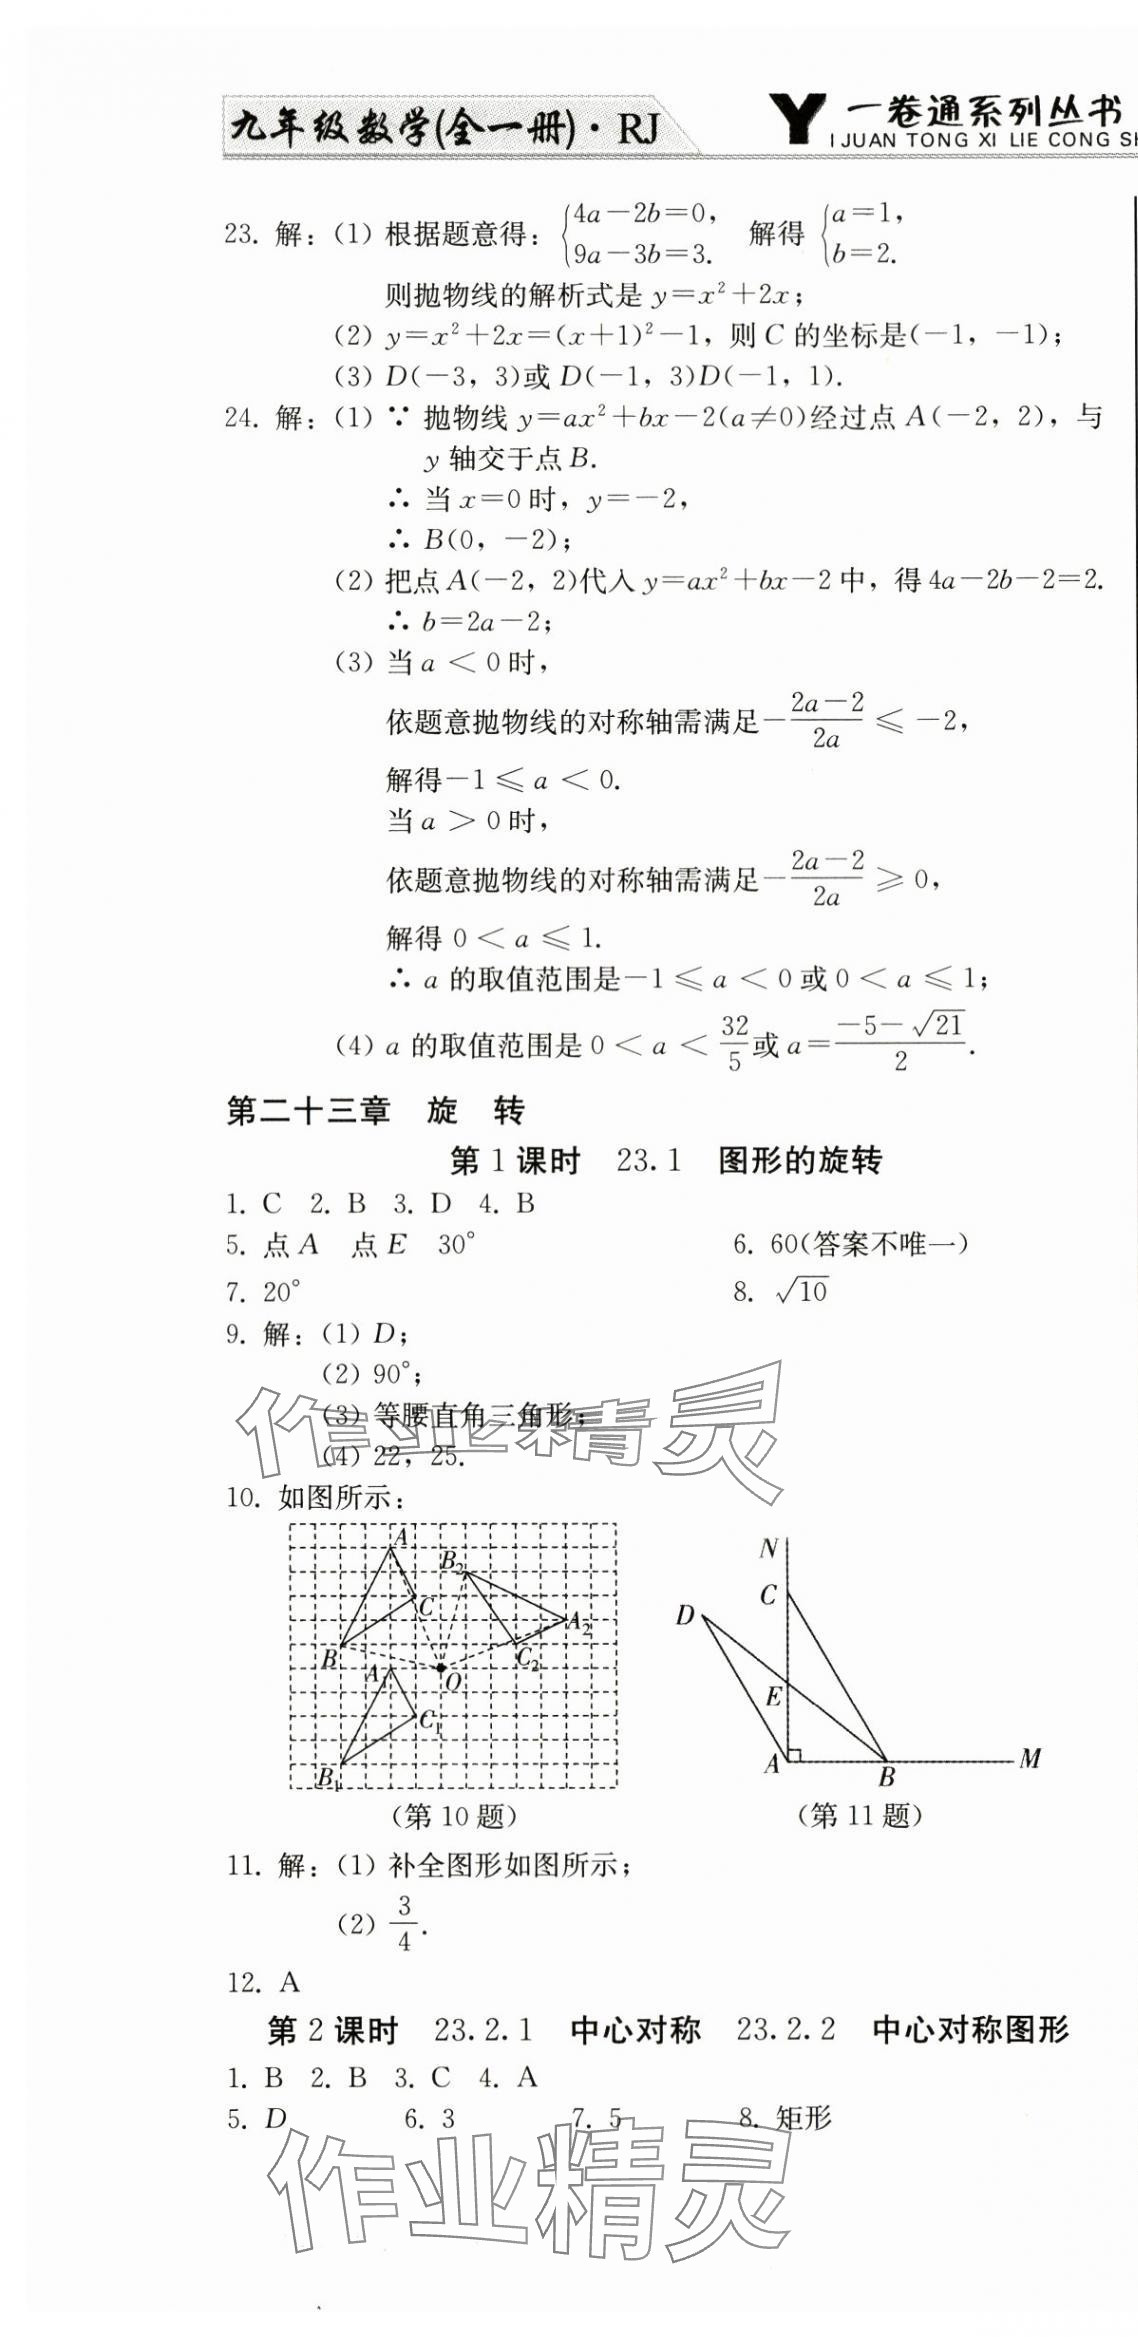 九年级数学(全一册)·RJ
一卷通系列丛书
I JUAN TONG XI LIE CONG SH
23. 解：(1) 根据题意得：{4a－2b＝0， 9a－3b＝3. 解得 {a＝1， b＝2.
则抛物线的解析式是 y＝x²＋2x；
(2) y＝x²＋2x＝(x＋1)²－1，则 C 的坐标是(－1，－1)；
(3) D(－3，3)或 D(－1，3)D(－1，1).
24. 解：(1) ∵ 抛物线 y＝ax²＋bx－2(a≠0)经过点 A(－2，2)，与
y 轴交于点 B.
∴ 当 x＝0 时，y＝－2，
∴ B(0，－2)；
(2) 把点 A(－2，2)代入 y＝ax²＋bx－2 中，得 4a－2b－2＝2.
∴ b＝2a－2；
(3) 当 a ＜ 0 时，
依题意抛物线的对称轴需满足－(2a－2)/2a ≤ －2，
解得－1 ≤ a ＜ 0.
当 a ＞ 0 时，
依题意抛物线的对称轴需满足－(2a－2)/2a ≥ 0，
解得 0 ＜ a ≤ 1.
∴ a 的取值范围是－1 ≤ a ＜ 0 或 0 ＜ a ≤ 1；
(4) a 的取值范围是 0 ＜ a ＜ 32/5 或 a＝(－5－√21)/2.
第二十三章 旋 转
第 1 课时 23.1 图形的旋转
1. C 2. B 3. D 4. B
5. 点 A 点 E 30° 6. 60(答案不唯一)
7. 20° 8. √10
9. 解：(1) D；
(2) 90°；
(3) 等腰直角三角形；
(4) 22，25.
作业精灵
10. 如图所示：
A B₂ C A₂ B A₁ O C₂ C₁ B₁
N C D E A B M
(第 10 题) (第 11 题)
11. 解：(1) 补全图形如图所示；
(2) 3/4.
12. A
第 2 课时 23.2.1 中心对称 23.2.2 中心对称图形
1. B 2. B 3. C 4. A
5. D 6. 3 7. 5 8. 矩形
作业精灵